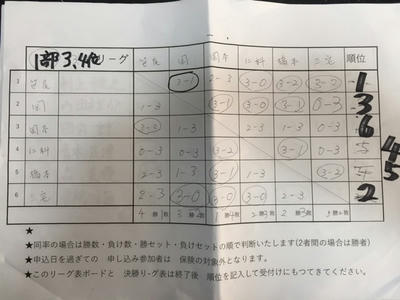 1部3.4位リーグ 笠反 関 関本 仁科 橋本 三宅 順位
1 笠反 3-1 2-3 3-0 3-2 3-2 1
2 関 1-3 3-1 3-0 3-1 0-3 3
3 関本 3-2 1-3 2-3 1-3 0-3 6
4 仁科 0-3 0-3 3-2 3-1 0-3 5 4
5 橋本 2-3 1-3 3-1 1-3 3-2 4 5
6 三宅 2-3 3-0 3-0 3-0 2-3 2
4勝1敗 3勝2敗 1勝4敗 2勝3敗 2勝3敗
★
★同率の場合は勝数・負け数・勝セット・負けセットの順で判断いたします(2者間の場合は勝者)
★申込日を過ぎての 申し込み参加者は 保険の対象外となります。
★このリーグ表ボードと 決勝リーグ表は終了後 順位を記入して受付けにもってきてください。